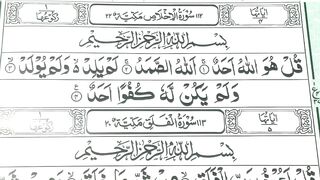 اٰيَاتُهَا ٤ ١١٢ سُوْرَةُ الْاِخْلَاصِ مَكِّيَّةٌ ٢٢ رُكُوْعُهَا ١
بِسْمِ اللّٰهِ الرَّحْمٰنِ الرَّحِيْمِ
قُلْ هُوَ اللّٰهُ اَحَدٌ ۚ ١ اَللّٰهُ الصَّمَدُ ۚ ٢ لَمْ يَلِدْ ۙ وَلَمْ يُوْلَدْ ۙ ٣
وَلَمْ يَكُنْ لَّهٗ كُفُوًا اَحَدٌ ٤
اٰيَاتُهَا ٥ ١١٣ سُوْرَةُ الْفَلَقِ مَكِّيَّةٌ ٢٠ رُكُوْعُهَا ١
بِسْمِ اللّٰهِ الرَّحْمٰنِ الرَّحِيْمِ